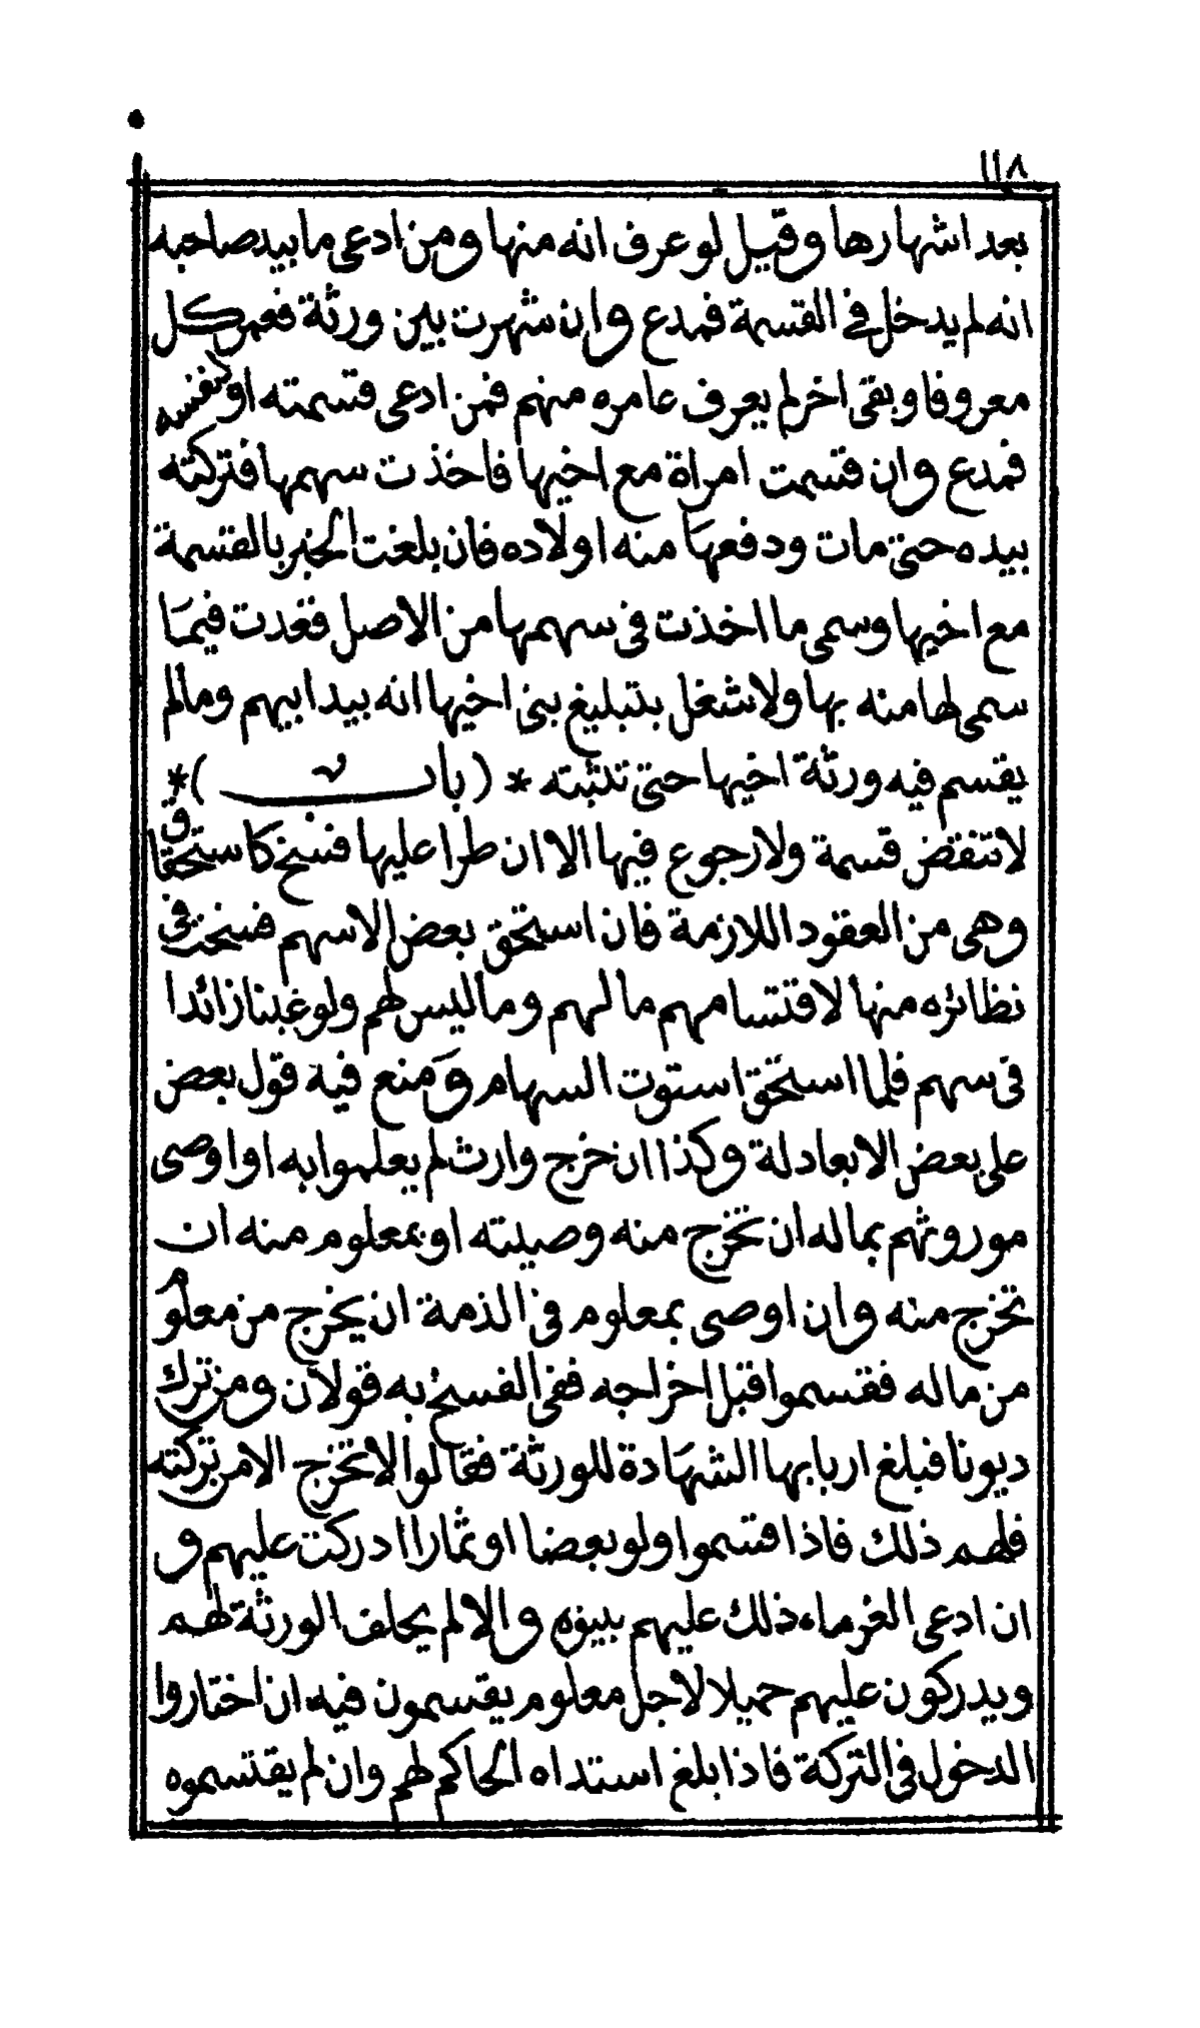 ١١٨
بعد اشهارها وقيل لو عرف انه منها ومن ادعى ما بيد صاحبه
انه لم يدخل في القسمة فمدع وان شهرت بين ورثة فعمر كل
معروفا وبقى اخر لم يعرف عامره منهم فمن ادعى قسمته او لنفسه
فمدع وان قسمت امراة مع اخيها فاخذت سهمها فتركته
بيده حتى مات ودفعها منه اولاده فان بلغت الخبر بالقسمة
مع اخيها وسمى ما اخذت فى سهمها من الاصل فقدت فيما
سمى لها منه بها ولا شغل بتبليغ بنى اخيها انه بيد ابيهم وما لم
يقسم فيه ورثة اخيها حتى تثبته * (باب) *
لا تنقض قسمة ولا رجوع فيها الا ان طرا عليها فسخ كاستحقاق
وهى من العقود اللازمة فان استحق بعض الاسهم فسخت فى
نظائره منها لاقتسامهم ما لهم وما ليس لهم ولو غبنا زائدا
فى سهم فلما استحق استوت السهام ومنع فيه قول بعض
على بعض الا بعادلة وكذا ان خرج وارث لم يعلموا به او اوصى
موروثهم بماله ان تخرج منه وصيته او بمعلوم منه ان
تخرج منه وان اوصى بمعلوم فى الذمة ان يخرج من معلوم
من ماله فقسموا قبل اخراجه ففى الفسخ به قولان ومن ترك
ديونا فبلغ اربابها الشهادة للورثة فقالوا لا تخرج الا من تركته
فلهم ذلك فاذا اقتسموا ولو بعضا او ثمارا ادركت عليهم و
ان ادعى الغرماء ذلك عليهم بينوه والا لم يحلف الورثة لهم
ويدركون عليهم حميلا لاجل معلوم يقسمون فيه ان اختاروا
الدخول فى التركة فاذا بلغ استداه الحاكم لهم وان لم يقتسموه